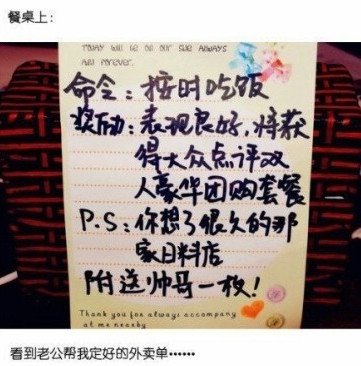 餐桌上：
TODAY will be on our side always
and forever.
命令：按时吃饭
奖励：表现良好，将获
得大众点评双
人豪华团购套餐
P.S：你想了很久的那
家日料店
附送帅哥一枚！
Thank you for always accompany
at me nearby
看到老公帮我定好的外卖单••••••